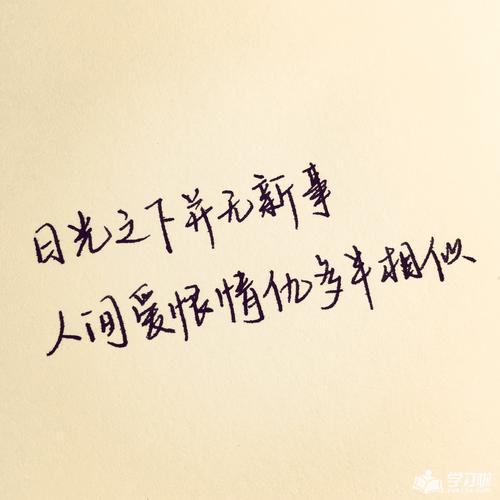 日光之下并无新事
人间爱恨情仇多半相似
学习啦